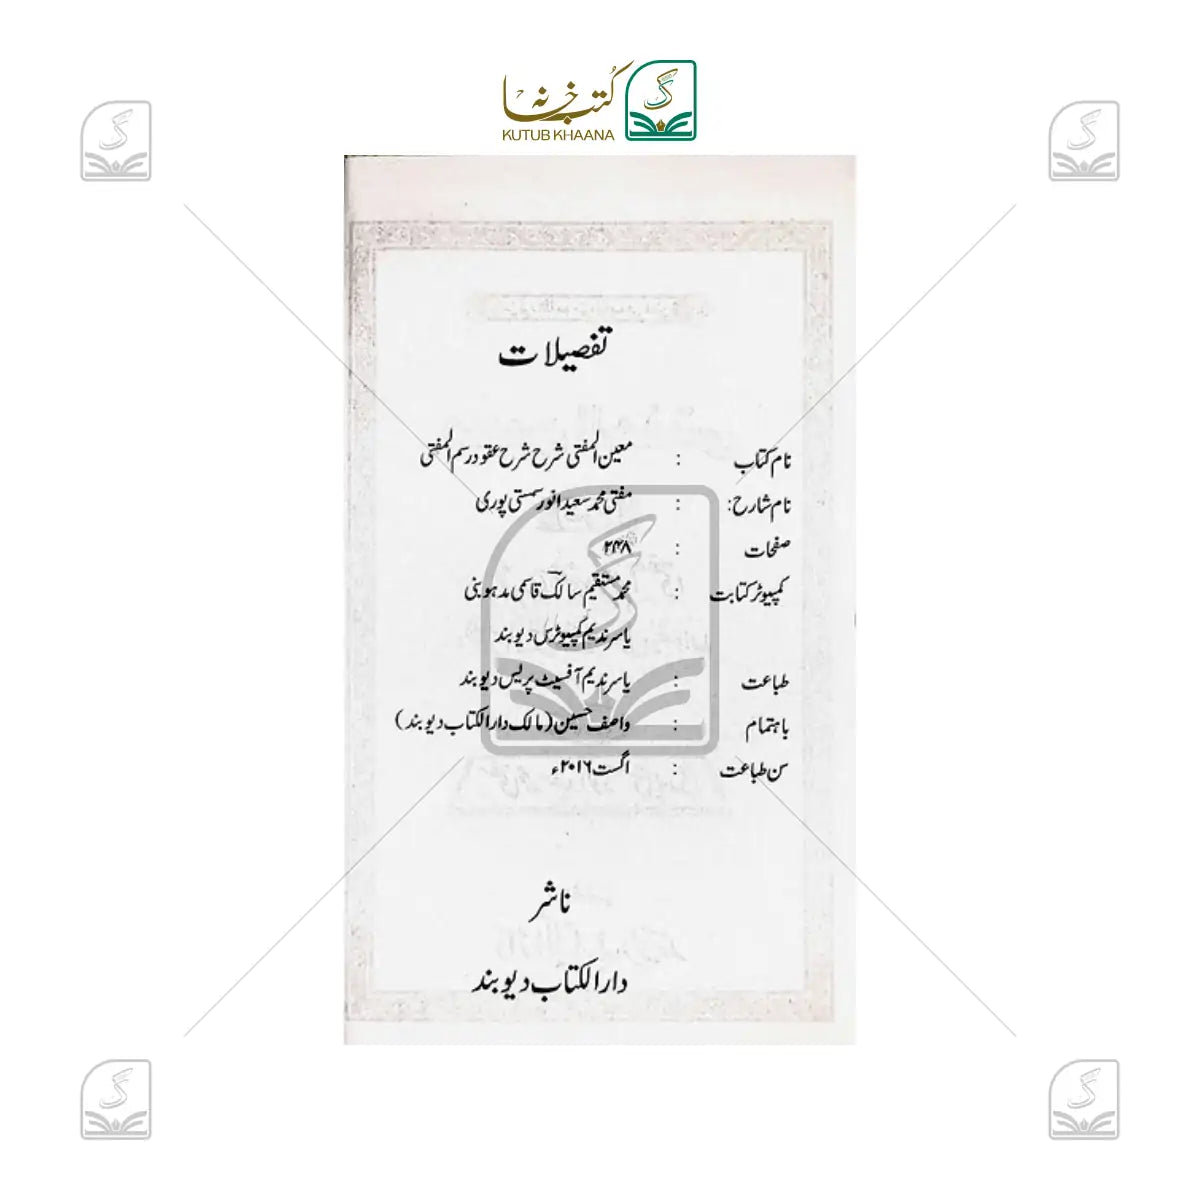 کتب خانہ
KUTUB KHAANA
تفصیلات
نام کتاب : معین المفتی شرح شرح عقود رسم المفتی
نام شارح: : مفتی محمد سعید انور سمستی پوری
صفحات : ۲۴۸
کمپیوٹر کتابت : محمد مستقیم سالکؔ قاسمی مدہوبنی
یاسر ندیم کمپیوٹرس دیوبند
طباعت : یاسر ندیم آفسیٹ پریس دیوبند
باہتمام : واصف حسین (مالک دارالکتاب دیوبند)
سن طباعت : اگست ۲۰۱۶ء
ناشر
دارالکتاب دیوبند